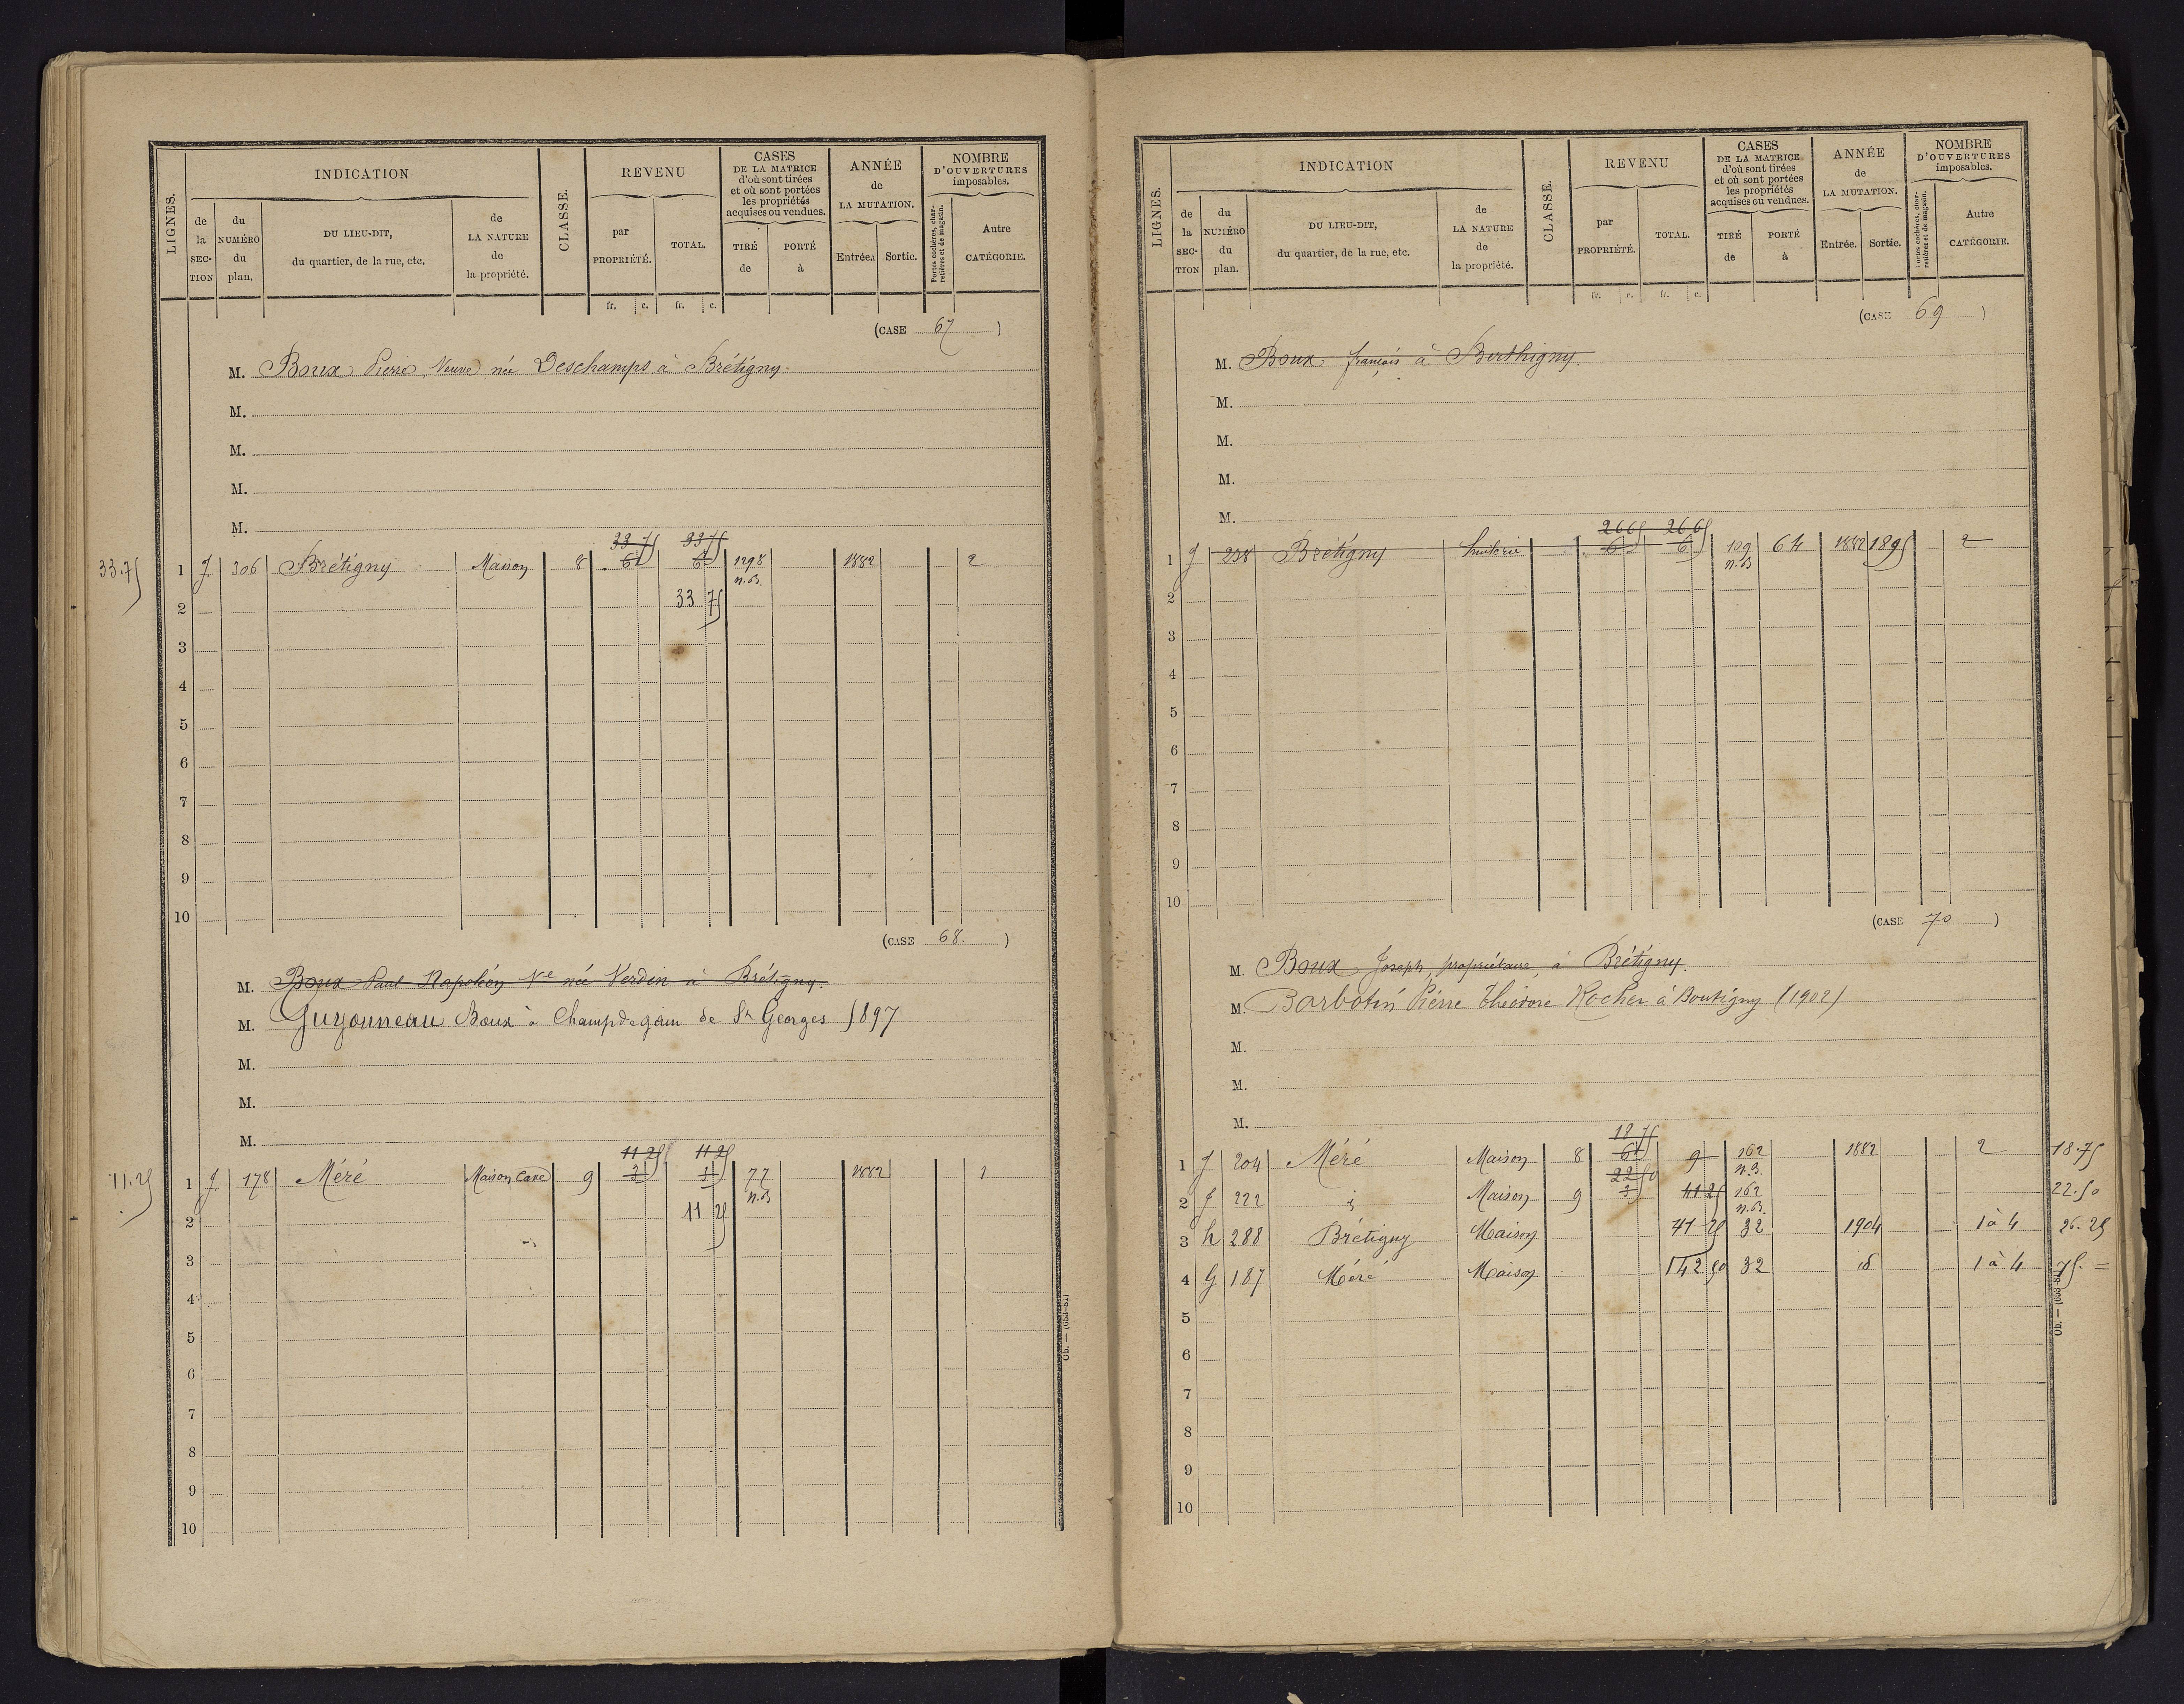 LIGNES.
INDICATION
de la SECTION
du NUMÉRO du plan.
DU LIEU-DIT, du quartier, de la rue, etc.
de LA NATURE de la propriété.
CLASSE.
REVENU
par PROPRIÉTÉ.
TOTAL.
CASES DE LA MATRICE d'où sont tirées et où sont portées les propriétés acquises ou vendues.
TIRÉ de
PORTÉ à
ANNÉE de LA MUTATION.
Entrée.
Sortie.
NOMBRE D'OUVERTURES imposables.
Portes cochères, charretières et de magasin.
Autre CATÉGORIE.
fr. c. fr. c.
(CASE 67 )
M. Boux Pierre, Veuve née Deschamps à Brétigny.
M.
M.
M.
M.
33 75 33 75
33.75 1 J. 306 Brétigny Maison 8 6 6 1298 1882 2
n.B.
2 33 75
3
4
5
6
7
8
9
10
(CASE 68. )
M. Boux Paul Napoléon Ve née Verdin à Brétigny.
M. Guyonneau Boux à Champdegain de St Georges 1897
M.
M.
M.
11 25 11 25
11.25 1 J. 178 Méré Maison Cave 9 3 3 77 1882 1
n.B
2 11 25
3
4
5
6
7
8
9
10
Ob. — (633-81)
LIGNES.
INDICATION
de la SECTION
du NUNÉRO du plan.
DU LIEU-DIT, du quartier, de la rue, etc.
de LA NATURE de la propriété.
CLASSE.
REVENU
par PROPRIÉTÉ.
TOTAL.
CASES DE LA MATRICE d'où sont tirées et où sont portées les propriétés acquises ou vendues.
TIRÉ de
PORTÉ à
ANNÉE de LA MUTATION.
Entrée.
Sortie.
NOMBRE D'OUVERTURES imposables.
Portes cochères, charretières et de magasin.
Autre CATÉGORIE.
fr. c. fr. c.
(CASE 69 )
M. Boux françois à Berthigny.
M.
M.
M.
M.
266 266
1 J 238 Brétigny huilerie 6 6 109 64 1882 1895 2
n.B
2
3
4
5
6
7
8
9
10
(CASE 70 )
M. Boux Joseph, propriétaire, à Brétigny.
M. Barbotin Pierre Théodore Rocher à Boutigny (1902)
M.
M.
M.
18 75
1 J 204 Méré Maison 8 6 9 162 1882 2 18.75
22 50 n.B.
2 J 222 Maison 9 3 41 25 162 22.50
n.B.
3 h 288 Brétigny Maison 41 25 32 1904 1 à 4 26.25
4 G 187 Méré Maison 142 50 32 id 1 à 4 75. =
5
6
7
8
9
10
Ob. — (633-81)